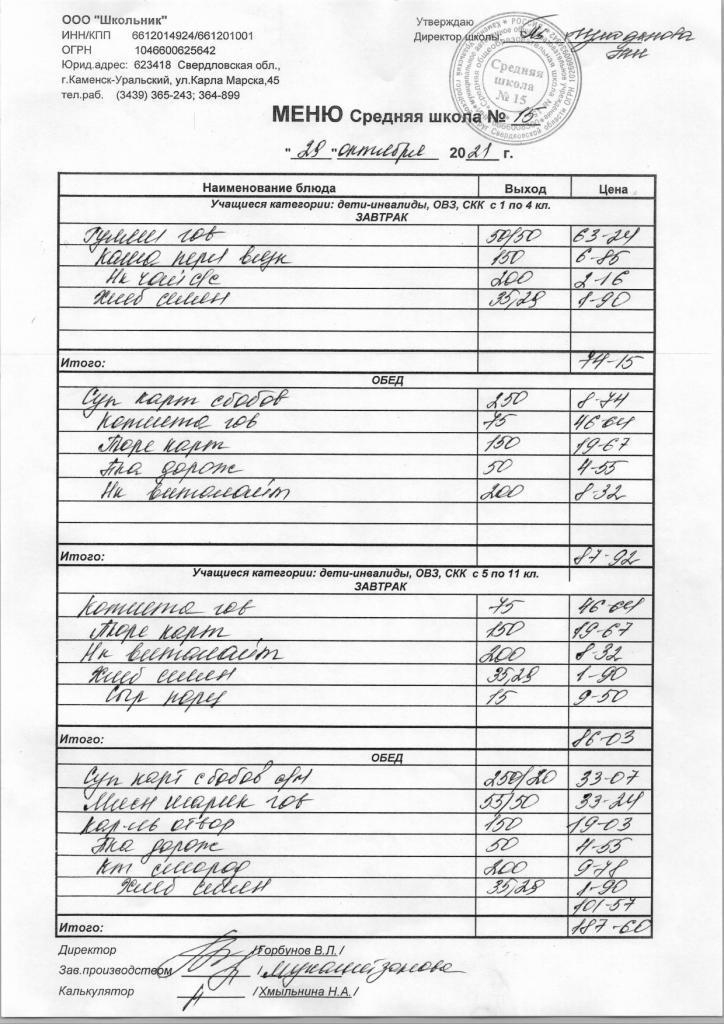 ООО "Школьник"
ИНН/КПП 6612014924/661201001
ОГРН 1046600625642
Юрид.адрес: 623418 Свердловская обл.,
г.Каменск-Уральский, ул.Карла Марска,45
тел.раб. (3439) 365-243; 364-899
Утверждаю
Директор школы:
Средняя
школа
№ 15
МЕНЮ Средняя школа № 15
"29" октября 2021 г.
Наименование блюда Выход Цена
Учащиеся категории: дети-инвалиды, ОВЗ, СКК с 1 по 4 кл.
ЗАВТРАК
Гуляш гов 50/50 63-24
Каша перл вязк 150 6-85
Нк чай с/с 200 2-16
Хлеб семен 35,29 1-90
Итого: 74-15
ОБЕД
Суп карт с бобов 250 8-74
Котлета гов 75 46-64
Пюре карт 150 19-67
Пка дорож 50 4-55
Нк витолайт 200 8-32
Итого: 87-92
Учащиеся категории: дети-инвалиды, ОВЗ, СКК с 5 по 11 кл.
ЗАВТРАК
Котлета гов 75 46-64
Пюре карт 150 19-67
Нк витолайт 200 8-32
Хлеб семен 35,29 1-90
Сыр порц 15 9-50
Итого: 86-03
ОБЕД
Суп карт с бобов с/м 250/20 33-07
Мясн шарик гов 55/50 33-24
Кар-ль отвор 150 19-03
Пка дорож 50 4-55
Кт смород 200 9-78
Хлеб семен 35,29 1-90
101-57
Итого: 187-60
Директор /Горбунов В.Л. /
Зав.производством / Мухаметзянова
Калькулятор / Хмыльнина Н.А. /